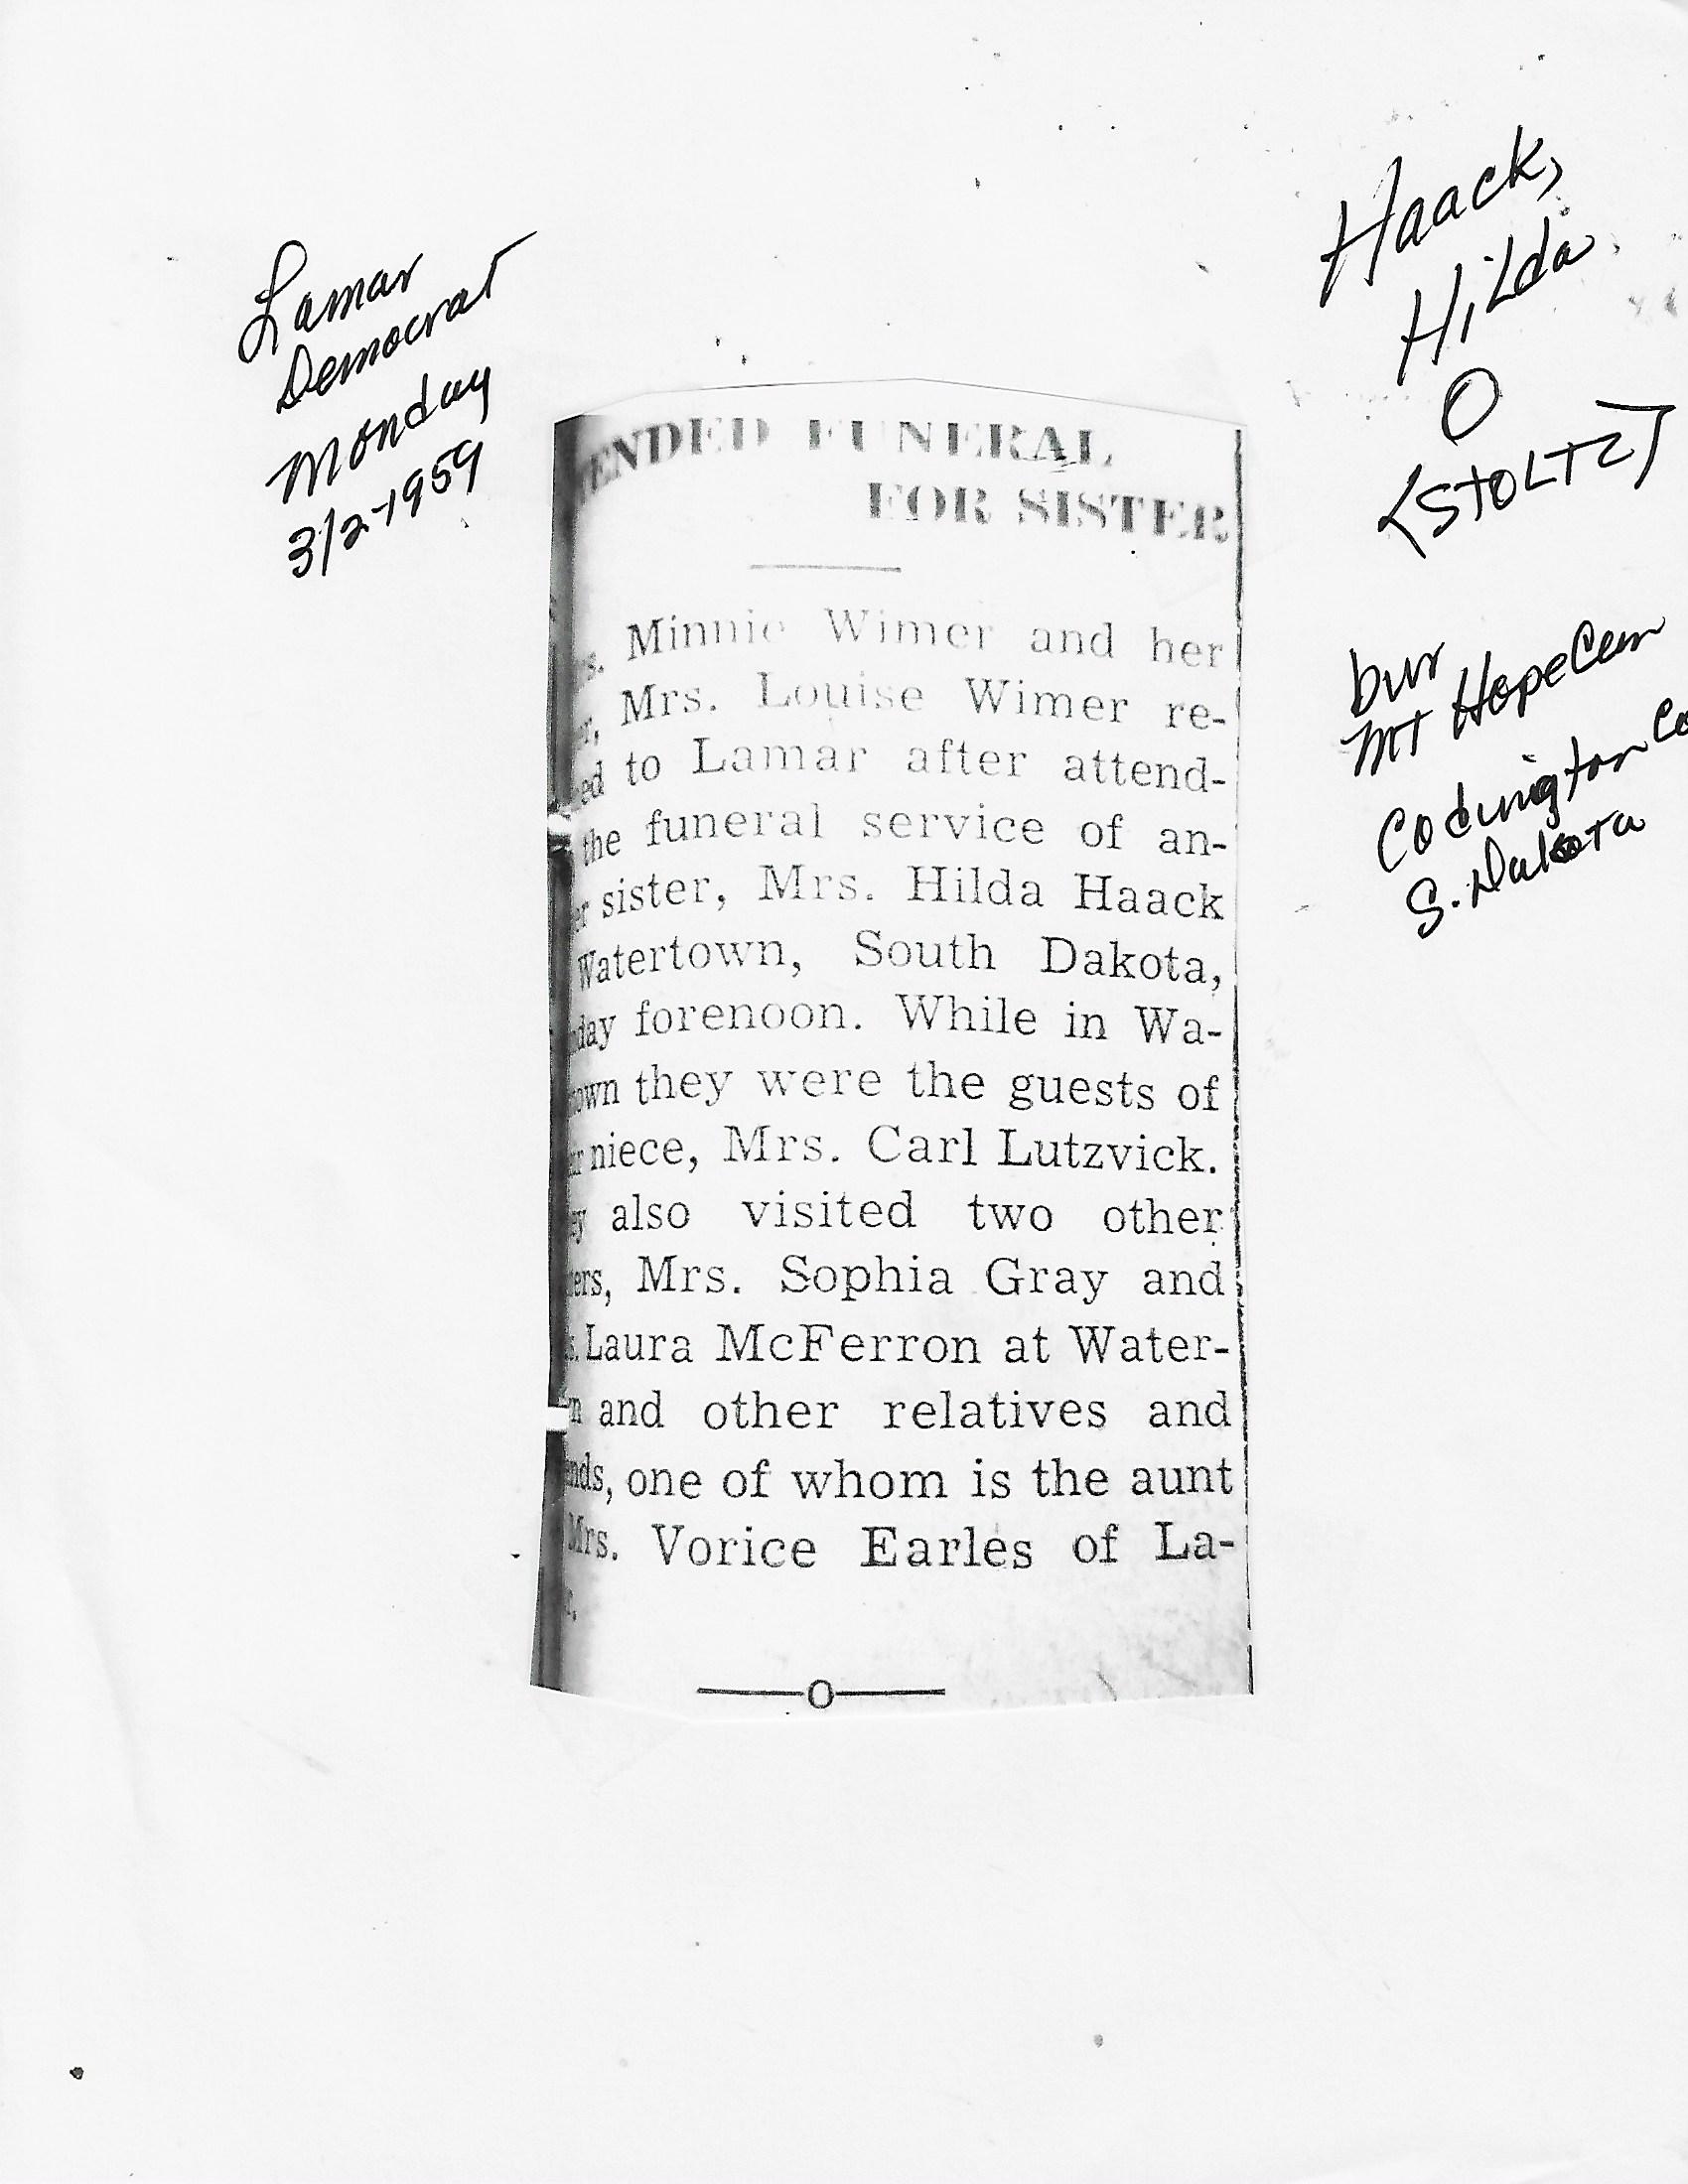 Lamar
Democrat
Monday
3/2-1959
Haack,
Hilda
O
<STOLTZ>
bur
Mt Hope Cem
Codington Co
S. Dakota
ENDED FUNERAL
FOR SISTER
s. Minnie Wimer and her
r, Mrs. Louise Wimer re-
ed to Lamar after attend-
the funeral service of an-
er sister, Mrs. Hilda Haack
Watertown, South Dakota,
day forenoon. While in Wa-
own they were the guests of
ir niece, Mrs. Carl Lutzvick.
ey also visited two other
ers, Mrs. Sophia Gray and
s. Laura McFerron at Water-
n and other relatives and
nds, one of whom is the aunt
Mrs. Vorice Earles of La-
r.
O